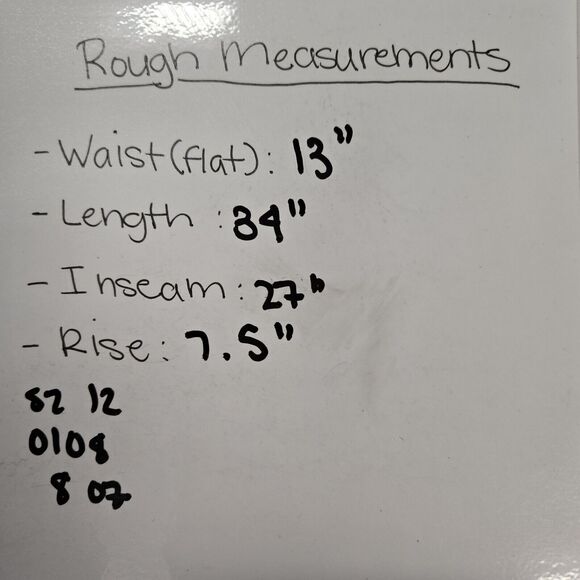 Rough Measurements
- Waist(flat): 13"
- Length : 34"
- Inseam: 27"
- Rise: 7.5"
sz 12
0108
8 07